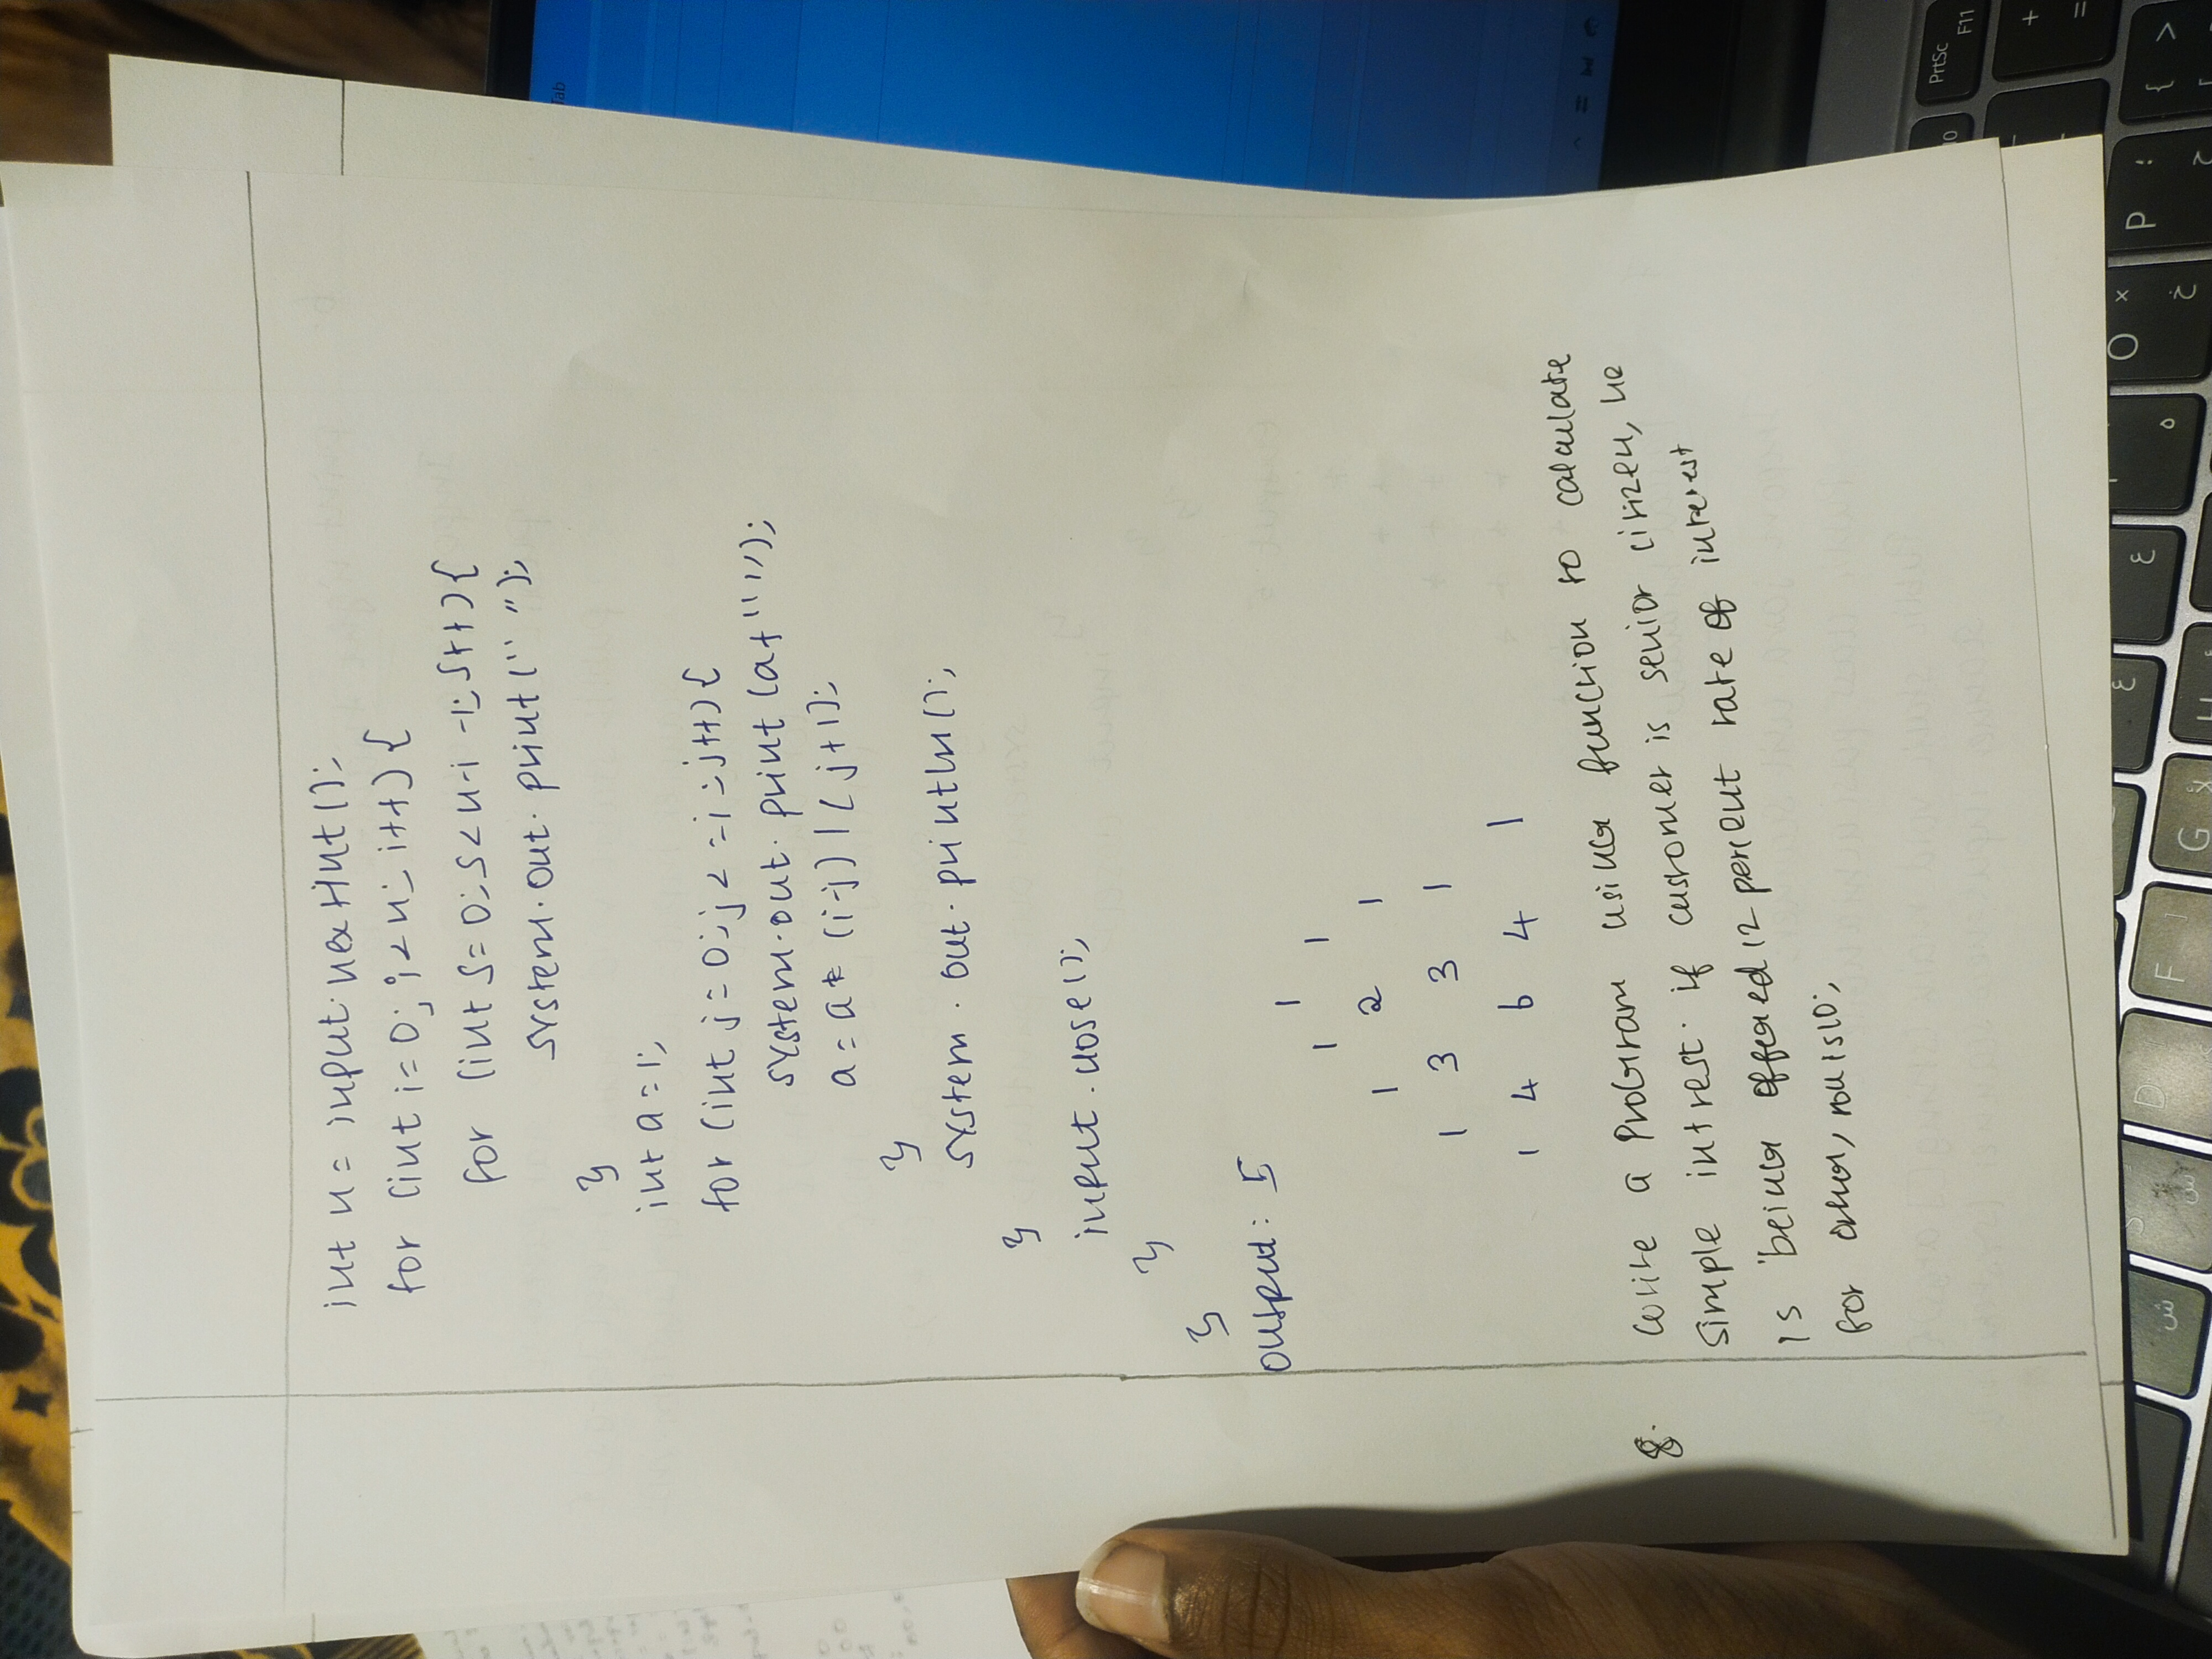 int n = input.nextInt();
for (int i=0; i<n; i++){
for (int s=0; s<n-i-1; s++){
system.out.print(" ");
}
int a=1;
for (int j=0; j<=i; j++){
system.out.print(a+" ");
a=a*(i-j)/(j+1);
}
system.out.println();
}
input.close();
}
}
output: 5
1
1 1
1 2 1
1 3 3 1
1 4 6 4 1
8. Write a Program using function to calculate
simple intrest. if customer is senior citizen, he
is being offered 12 percent rate of interest
for other, ROI is 10;
Tab
PrtSc
F11
D F G O P